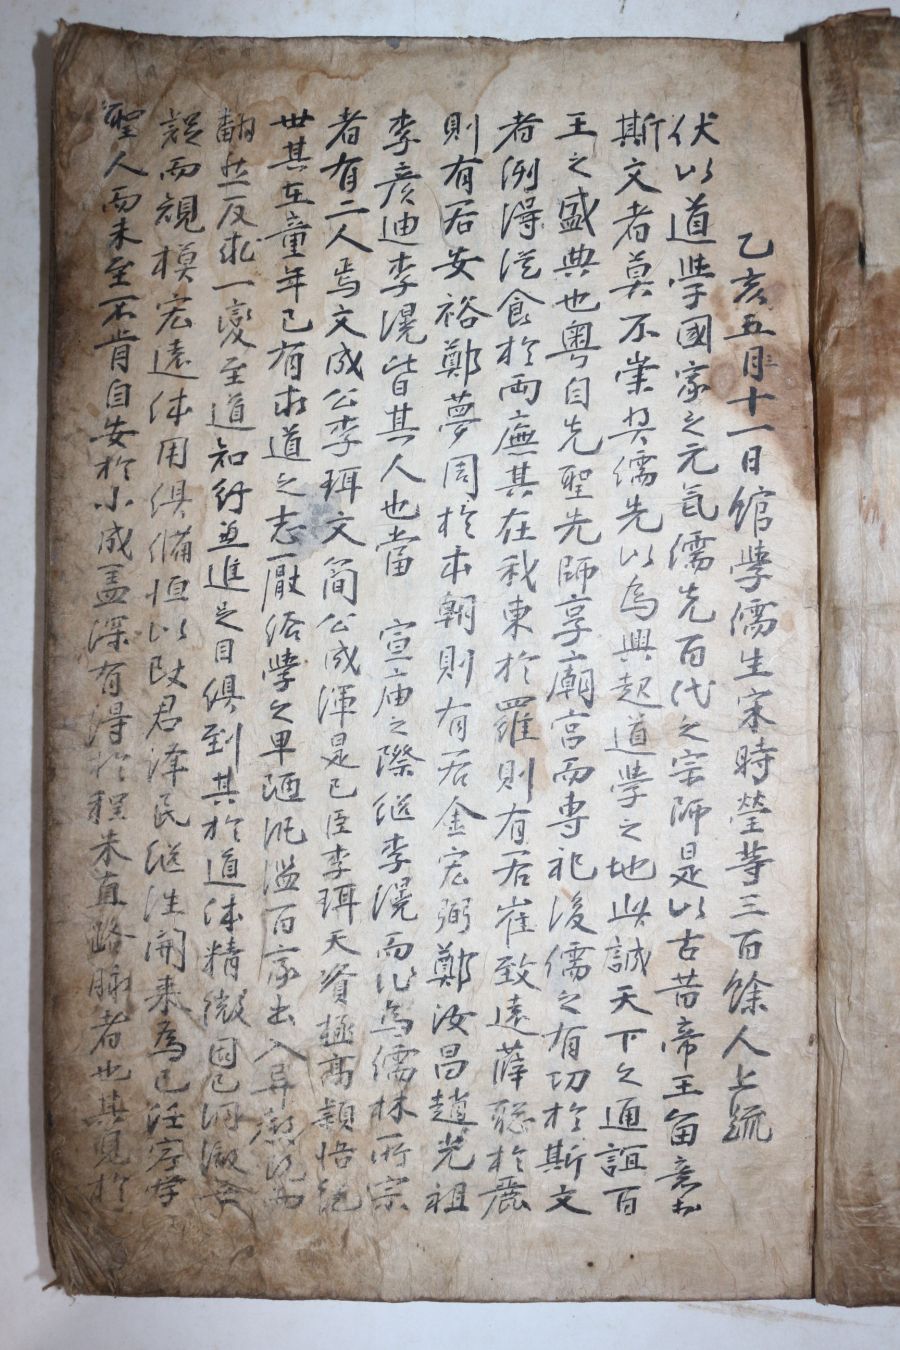 乙亥五月十一日館學儒生宋時瑩等三百餘人上疏
伏以道學國家之元氣儒先百代之宗師是以古昔帝王留意於
斯文者莫不崇奬儒先以爲興起道學之地此誠天下之通誼百
王之盛典也粤自先聖先師享廟宮而專祀後儒之有功於斯文
者例得從食於兩廡其在我東於羅則有若崔致遠薛聰於麗
則有若安裕鄭夢周於本朝則有若金宏弼鄭汝昌趙光祖
李彦迪李滉皆其人也當 宣庙之際继李滉而作爲儒林所宗
者有二人焉文成公李珥文简公成渾是已臣李珥天資極高穎悟絶
世其在童年已有求道之志一厭俗學之卑陋汎濫百家出入異教
翻然反求一變至道知行並進足目俱到其於道体精微因已洞澈
而規模宏遠体用俱備恒以致君澤民继往開来爲己任
聖人而未至不肯自安於小成盖深有得於程朱直路脉者也其見於